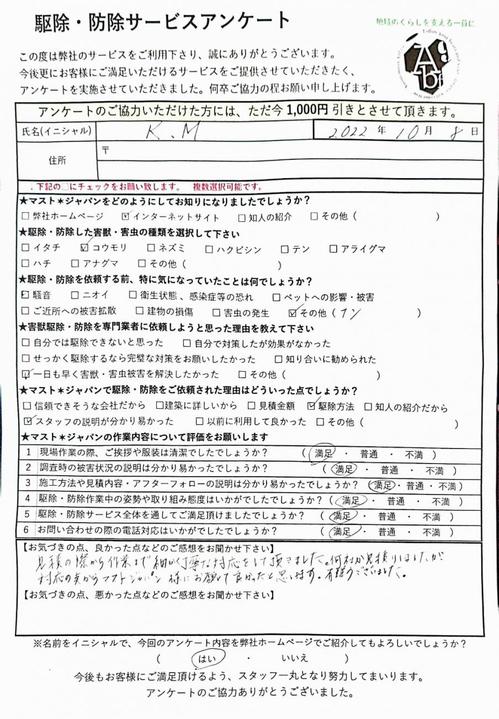 駆除・防除サービスアンケート
地域のくらしを支える一員に
この度は弊社のサービスをご利用下さり、誠にありがとうございます。
今後更にお客様にご満足いただけるサービスをご提供させていただきたく、
アンケートを実施させていただきました。何卒ご協力の程お願い申し上げます。
アンケートのご協力いただけた方には、ただ今1,000円引きとさせて頂きます。
氏名(イニシャル) K.M 2022年10月8日
住所 〒
下記の□にチェックをお願い致します。 複数選択可能です。
★マスト＊ジャパンをどのようにしてお知りになりましたでしょうか?
□弊社ホームページ ☑インターネットサイト □知人の紹介 □その他( )
★駆除・防除した害獣・害虫の種類を選択して下さい
□イタチ ☑コウモリ □ネズミ □ハクビシン □テン □アライグマ
□ハチ □アナグマ □その他( )
★駆除・防除を依頼する前、特に気になっていたことは何でしょうか?
☑騒音 □ニオイ □衛生状態、感染症等の恐れ □ペットへの影響・被害
□ご近所への被害拡散 □建物の損傷 □害虫の発生 ☑その他(フン )
★害獣駆除・防除を専門業者に依頼しようと思った理由を教えて下さい
□自分では駆除できないと思った □自分で対策したが効果がなかった
□せっかく駆除するなら完璧な対策をお願いしたかった □知り合いに勧められた
☑一日も早く害獣・害虫被害を解決したかった □その他( )
★マスト＊ジャパンで駆除・防除をご依頼された理由はどういった点でしょうか?
□信頼できそうな会社だから □建築に詳しいから □見積金額 ☑駆除方法 □知人の紹介だから
☑スタッフの説明が分かり易かった □以前に利用して良かった □その他( )
★マスト＊ジャパンの作業内容について評価をお願いします
1 現場作業の際、ご挨拶や服装は清潔でしたでしょうか? ( 満足 ・ 普通 ・ 不満 )
2 調査時の被害状況の説明は分かり易かったでしょうか? ( 満足 ・ 普通 ・ 不満 )
3 施工方法や見積内容・アフターフォローの説明は分かり易かったでしょうか? ( 満足・ 普通 ・ 不満 )
4 駆除・防除作業中の姿勢や取り組み態度はいかがでしたでしょうか? ( 満足 ・ 普通 ・ 不満 )
5 駆除・防除サービス全体を通してご満足頂けましたでしょうか? ( 満足 ・ 普通 ・ 不満 )
6 お問い合わせの際の電話対応はいかがでしたでしょうか? ( 満足 ・ 普通 ・ 不満 )
【お気づきの点、良かった点などのご感想をお聞かせ下さい】
見積の際から作業まで細かく丁寧な対応をして頂きました。何社か見積りしましたが
対応の良からマストジャパン様にお願いして良かったと思います。有難うございました。
【お気づきの点、悪かった点などのご感想をお聞かせ下さい】
※名前をイニシャルで、今回のアンケート内容を弊社ホームページでご紹介してもよろしいでしょうか?
( はい ・ いいえ )
今後もお客様にご満足頂けるよう、スタッフ一丸となり努力してまいります。
アンケートのご協力ありがとうございました。